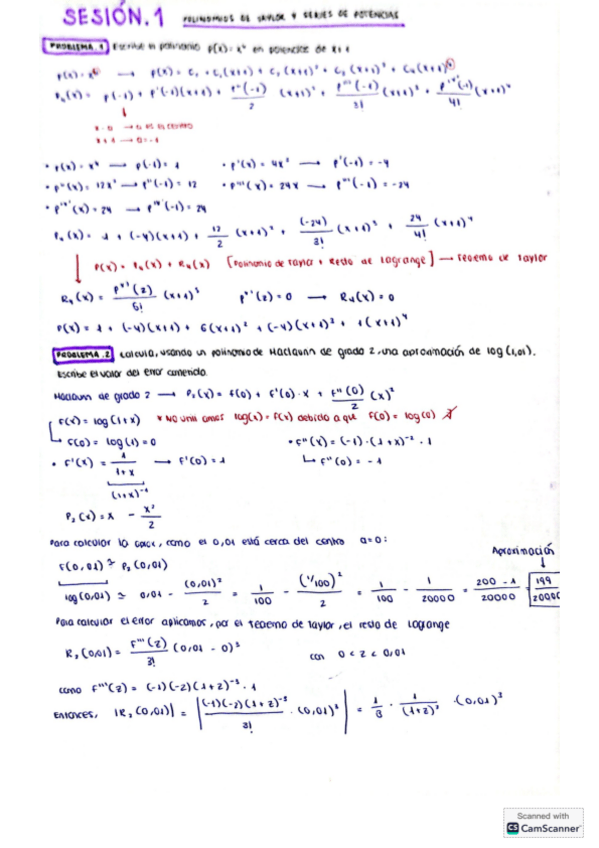 SESIÓN.1 POLINOMIOS DE TAYLOR Y SERIES DE POTENCIAS
PROBLEMA.1 Escribe el polinomio p(x)=x⁴ en potencias de x+1
p(x)=x⁴ → p(x)= C₀ + C₁(x+1) + C₂(x+1)² + C₃(x+1)³ + C₄(x+1)⁴
P₄(x)= p(-1) + p'(-1)(x+1) + p''(-1)/2 (x+1)² + p'''(-1)/3! (x+1)³ + p''''(-1)/4! (x+1)⁴
x-a → a es el centro
x+1 → a=-1
• p(x)=x⁴ → p(-1)=1 • p'(x)=4x³ → p'(-1)=-4
• p''(x)=12x² → p''(-1)=12 • p'''(x)=24x → p'''(-1)=-24
• p''''(x)=24 → p''''(-1)=24
P₄(x)= 1 + (-4)(x+1) + 12/2 (x+1)² + (-24)/3! (x+1)³ + 24/4! (x+1)⁴
P(x)=P₄(x)+R₄(x) [Polinomio de Taylor + Resto de Lagrange] → Teorema de Taylor
R₄(x)= (z)/5! (x+1)⁵ (z)=0 → R₄(x)=0
P(x)= 1 + (-4)(x+1) + 6(x+1)² + (-4)(x+1)³ + 1(x+1)⁴
PROBLEMA.2 Calcula, usando un polinomio de Maclaurin de grado 2, una aproximación de log(1,01).
Escribe el valor del error cometido.
Maclaurin de grado 2 → P₂(x)= f(0) + f'(0)·x + f''(0)/2 (x)²
f(x)=log(1+x) * NO log(x)=f(x) debido a que f(0)=log(0) ∄
f(0)= log(1)=0 • f''(x)=(-1)·(1+x)⁻²·1
• f'(x)= 1/1+x → f'(0)=1 f''(0)=-1
(1+x)⁻¹
P₂(x)=x - x²/2
Para calcular la, como el 0,01 está cerca del centro a=0:
Aproximación
f(0,01) ≃ P₂(0,01)
log(0,01) ≃ 0,01 - (0,01)²/2 = 1/100 - (1/100)²/2 = 1/100 - 1/20000 = 200-1/20000 = 199/20000
Para calcular el error aplicamos, por el Teorema de Taylor, el resto de Lagrange
R₂(0,01)= f'''(z)/3! (0,01-0)³ con 0<z<0,01
como f'''(z)=(-1)(-2)(1+z)⁻³·1
Entonces, |R₂(0,01)| = |(-1)(-2)(1+z)⁻³/3! · (0,01)³| = 1/3 · 1/(1+z)³ · (0,01)³
Scanned with
CS CamScanner